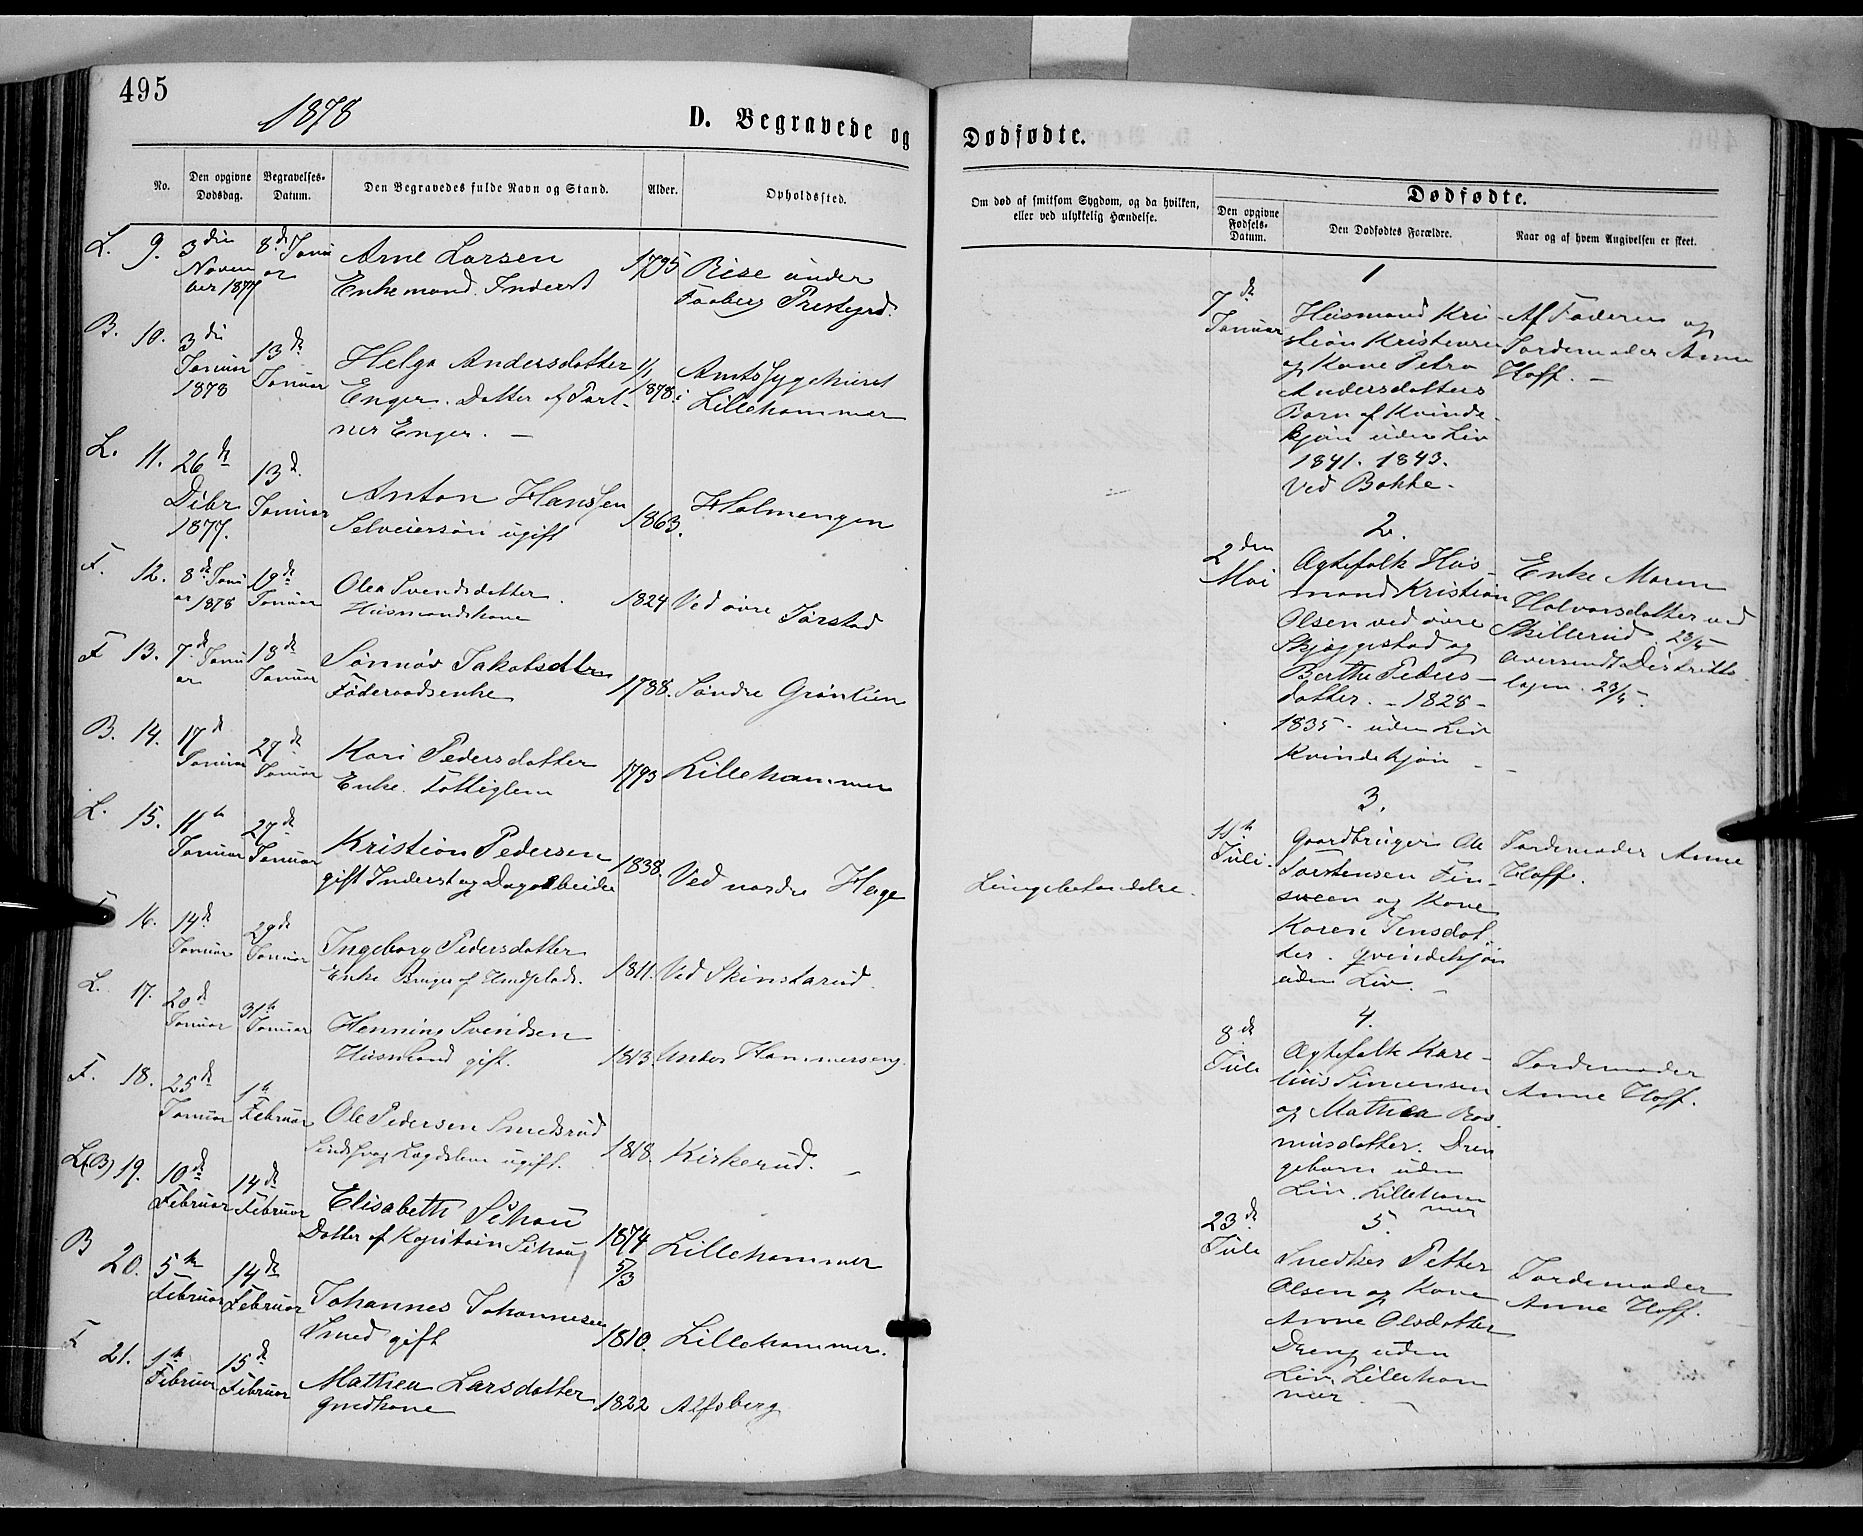 495
1878
D. Begravede og
No.
Den opgivne Dødsdag.
Begravelses-Datum.
Den Begravedes fulde Navn og Stand.
Alder.
Opholdssted.
L. 9. 3die November 1877 8de Januar
Arne Larsen
Enkemand. Inderst
1795
Rise under
Faaberg Prestegrd.
B. 10. 3die Januar 1878 13de Januar
Helga Andersdatter
Enger. Datter af Part-
ner Enger. —
1/1 1878.
Amtssygehuset
i Lillehammer
L. 11. 26de Dcbr 1877. 13d. Januar
Anton Hanssen
Selveiersøn ugift
1863.
Holmengen
F. 12. 8de Januar 1878 19de Januar
Olea Svendsdatter.
Husmandskone
1824
Ved øvre Jørstad
F 13. 7de Januar 18de Januar
Sønnøv Jakobsdtr
Føderaadsenke
1788.
Søndre Grønlien
B. 14. 17de Januar 27de Januar
Kari Pedersdatter
Enke. Fattiglem
1793
Lillehammer
L. 15. 11te Januar 27de Januar
Kristian Pedersen
gift Inderst og Dagarbeider
1838.
Ved nordre Hage
16. 14de Januar 29de Januar
Ingeborg Pedersdatter
Enke Bruger af Husplads.
1811.
Ved Skinstarud.
L. 17. 20de Januar 31te Januar
Henning Svendsen
Husmand gift.
1813.
Under Hammerseng.
F. 18. 25de Januar 1te Februar
Ole Pedersen Smedsrud
Sindssvag Lægdslem ugift.
1818.
Kirkerud. —
L(B) 19. 10de Februar 14de Februar
Elisabeth Schou
Datter af Kapitain Schou
1874 5/3
Lillehammer
B 20. 5te Februar 14de Februar
Johannes Johannesen
Smed gift
1810.
Lillehammer.
F 21. 1te Februar 15de Februar
Mathea Larsdatter
gmdkone
1822
Alfsberg
Dødfødte.
Om død af smitsom Sygdom, og da hvilken,
eller ved ulykkelig Hændelse.
Dødfødte.
Den opgivne Fødsels-Datum.
Den Dødfødtes Forældre.
Naar og af hvem Angivelsen er skeet.
Lungebetændelse.
1
7de Januar
Husmand Kri-
stian Kristensen
og Kone Petra
Andersdatters
Barn af Kvinde-
kjøn uden Liv
1841. 1843.
Ved Bakke.
Af Faderen og
Jordemoder Anne
Hoff. —
2.
2den Mai
Ægtefolk Hus-
mand Kristian
Olsen ved øvre
Skjæggestad og
Berthe Peders-
datter. - 1828 -
1835 - uden Liv
Kvindekjøn -
Enke Maren
Halvorsdatter ved
Skillerud. 23/5
oversendt Distrikts-
lægen. 23/5.
3.
11te Juli.
Gaardbruger Ole
Torstensen Fin-
sveen og Kone
Karen Jensdat-
ter. Qvindekjøn
uden Liv. —
Jordemoder Anne
Hoff.
4.
8de Juli
Ægtefolk Kare-
lius Simensen
og Mathea Ras-
musdatter. Dren
gebarn uden
Liv. Lilleham
mer
Jordemoder
Anne Hoff.
5
23de Juli
Smedsv Petter
Olsen og Kone
Anne Olsdatter
Dreng uden
Liv. Lilleham
mer. —
Jordemoder
Anne Hoff.